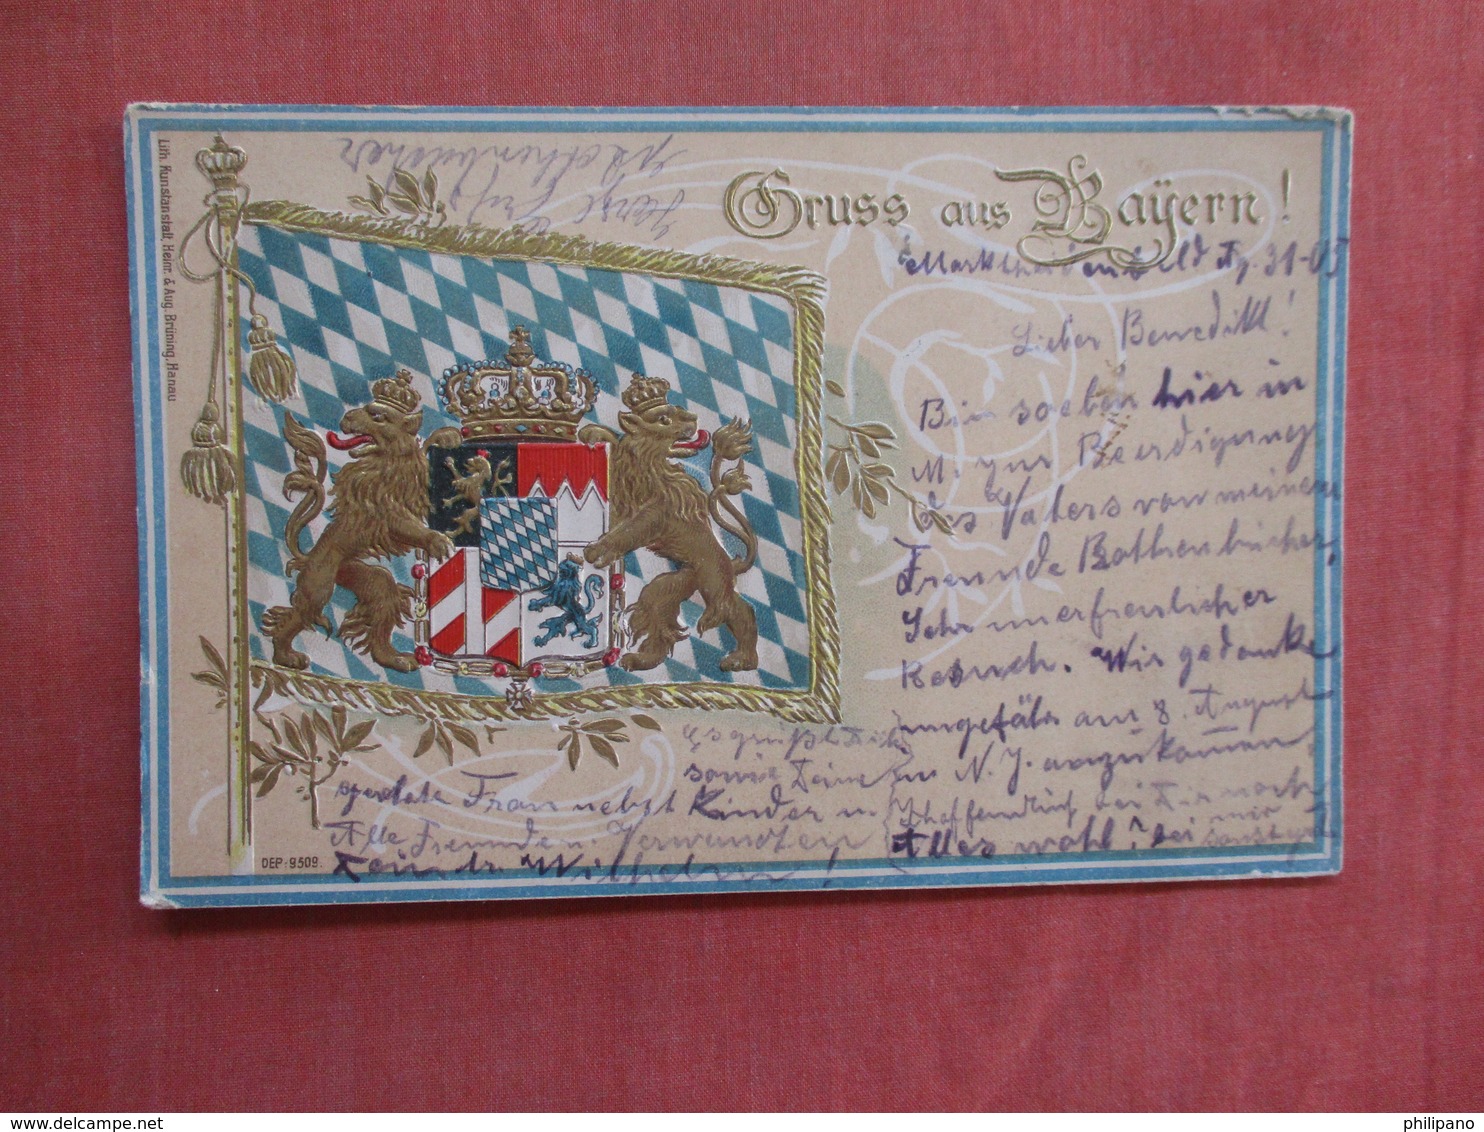 Gruss aus Bayern!
Lith. Kunstanstalt, Heinr. & Aug. Brüning, Hanau
Marktheidenfeld 31-05
Lieber Benedikt!
Bin soeben hier in
M. zur Beerdigung
des Vaters von meinem
Freunde Rothenbücher.
Sehr unerfreulicher
Besuch. Wir gedenke
ungefähr am 8. August
in N.Y. anzukommen
Hoffendlich bei Dir noch
Alles wohl? bei mir
Es grüßt Dich
sowie Deine
geehrte Frau nebst Kinder u.
Alle Freunde u. Verwandten
Dein Wilhelm!
Rothenbücher
DEP. 9509.
philipano
delcampe.net